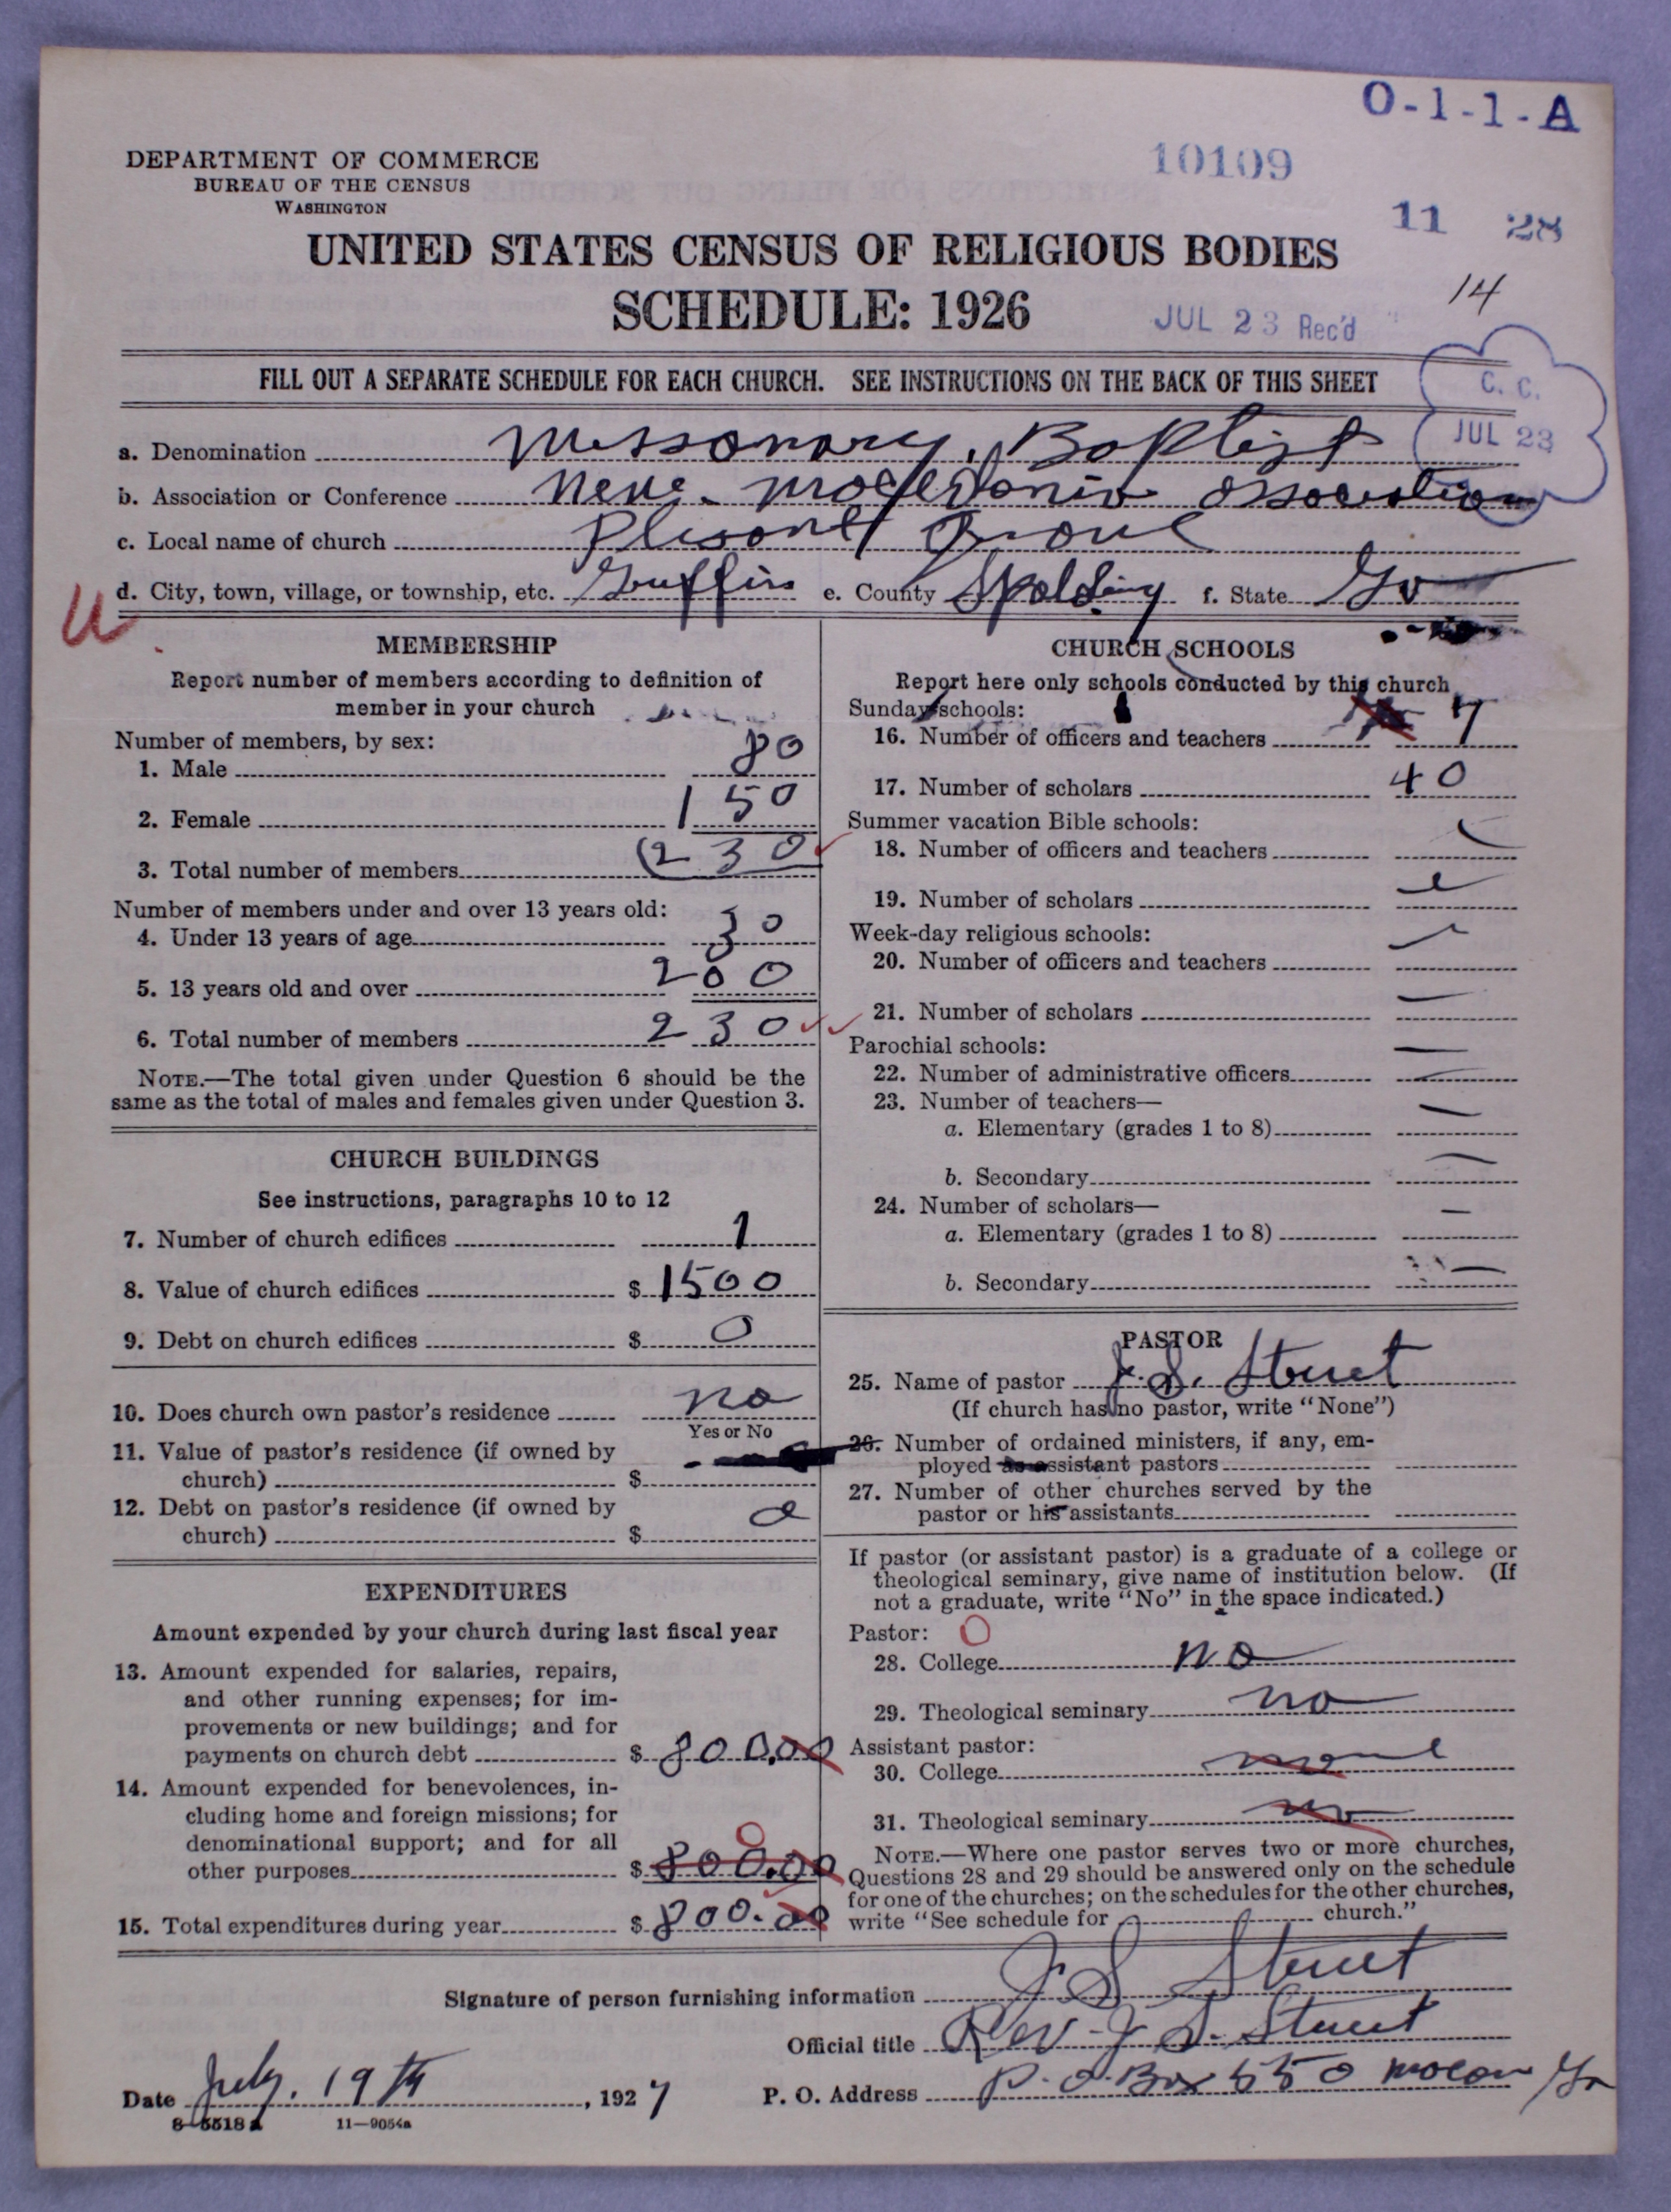 O-1-1-A
DEPARTMENT OF COMMERCE
BUREAU OF THE CENSUS
WASHINGTON
10109
11 28
UNITED STATES CENSUS OF RELIGIOUS BODIES
SCHEDULE: 1926
14
JUL 23 Rec'd
FILL OUT A SEPARATE SCHEDULE FOR EACH CHURCH. SEE INSTRUCTIONS ON THE BACK OF THIS SHEET
C. C.
JUL 23
a. Denomination Missonary. Baptist
b. Association or Conference Macedonia association
c. Local name of church Plesant Grove
d. City, town, village, or township, etc. Griffin e. County Spalding f. State Ga
MEMBERSHIP
Report number of members according to definition of
member in your church
Number of members, by sex:
1. Male 80
2. Female 150
3. Total number of members 230
Number of members under and over 13 years old:
4. Under 13 years of age 30
5. 13 years old and over 200
6. Total number of members 230
NOTE.—The total given under Question 6 should be the
same as the total of males and females given under Question 3.
CHURCH BUILDINGS
See instructions, paragraphs 10 to 12
7. Number of church edifices 1
8. Value of church edifices $ 1500
9. Debt on church edifices $ 0
10. Does church own pastor's residence no
Yes or No
11. Value of pastor's residence (if owned by
church) $
12. Debt on pastor's residence (if owned by
church) $
EXPENDITURES
Amount expended by your church during last fiscal year
13. Amount expended for salaries, repairs,
and other running expenses; for im-
provements or new buildings; and for
payments on church debt $ 800.00
14. Amount expended for benevolences, in-
cluding home and foreign missions; for
denominational support; and for all
0
other purposes $ 800.00
15. Total expenditures during year $ 800.00
CHURCH SCHOOLS
Report here only schools conducted by this church
Sunday schools:
16. Number of officers and teachers 7
17. Number of scholars 40
Summer vacation Bible schools:
18. Number of officers and teachers
19. Number of scholars
Week-day religious schools:
20. Number of officers and teachers
21. Number of scholars —
Parochial schools:
22. Number of administrative officers —
23. Number of teachers—
a. Elementary (grades 1 to 8) —
b. Secondary —
24. Number of scholars—
a. Elementary (grades 1 to 8) —
b. Secondary —
PASTOR
25. Name of pastor J. S. Street
(If church has no pastor, write "None")
26. Number of ordained ministers, if any, em-
ployed as assistant pastors
27. Number of other churches served by the
pastor or his assistants
If pastor (or assistant pastor) is a graduate of a college or
theological seminary, give name of institution below. (If
not a graduate, write "No" in the space indicated.)
Pastor: 0
28. College no
29. Theological seminary no
Assistant pastor:
30. College none
31. Theological seminary no
NOTE.—Where one pastor serves two or more churches,
Questions 28 and 29 should be answered only on the schedule
for one of the churches; on the schedules for the other churches,
write "See schedule for church."
Signature of person furnishing information J S Street
Official title Rev. J. S. Street
Date July. 19th, 1927 P. O. Address P. O. Box 550 Macon Ga
8-5518a 11—9054a